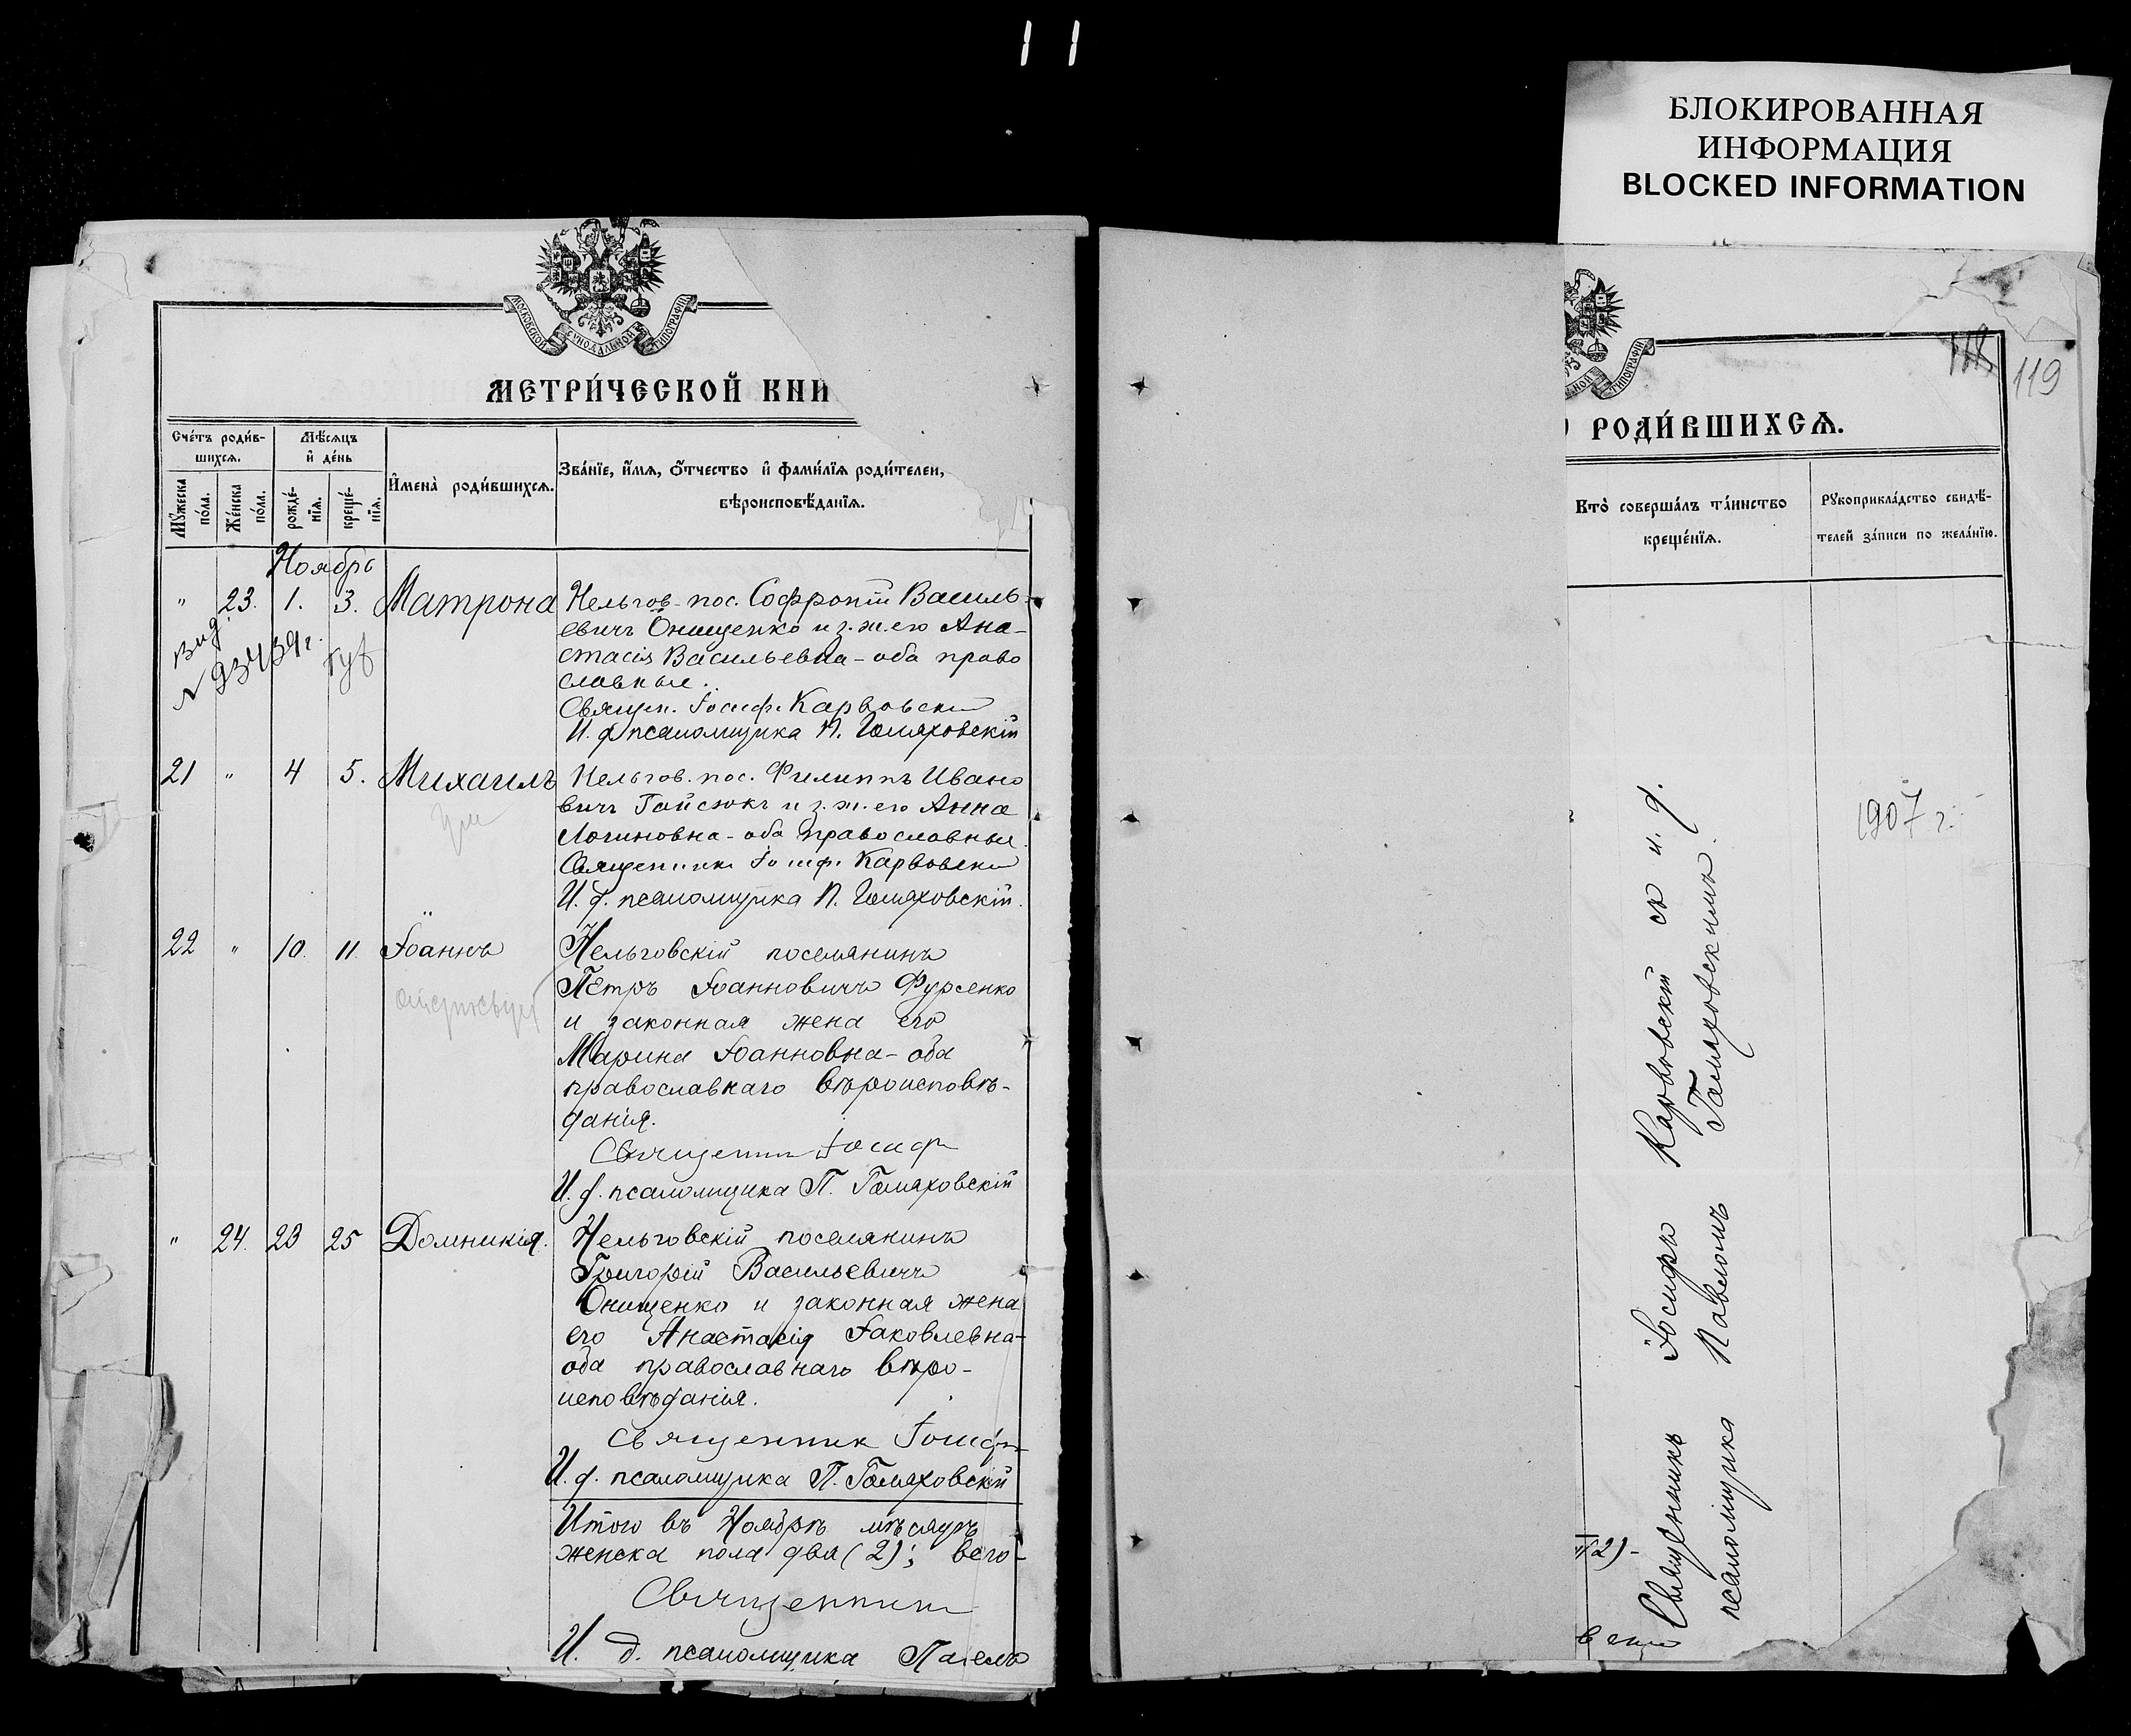 11
БЛОКИРОВАННАЯ
ИНФОРМАЦИЯ
BLOCKED INFORMATION
МОСКОВСКОЙ СѴНОДАЛЬНОЙ ТИПОГРАФІИ
МЕТРИ́ЧЕСКОЙ КНИ
Сче́тъ роди́в-
шихсѧ.
Мѣ́сѧцъ
и҆ де́нь
И҆мена̀ роди́вшихсѧ.
Зва́нїе, и҆́мѧ, ѻ҆́тчество и҆ фами́лїѧ роди́телей,
вѣроисповѣ́данїѧ.
Мꙋ́жеска
по́ла.
Же́нска
по́ла.
рожде́-
нїѧ.
креще́-
нїѧ.
Ноябрь
" 23. 1. 3. Матрона Нельгов. пос. Софроній Василь-
евичъ Онищенко и з. ж. его Ана-
стасія Васильевна - оба право
славные.
Священ. Іосифъ Карвовскій
И. д. псаломщика П. Гомяховскій
Вид.
21 " 4 5. Михаилъ Нельгов. пос. Филиппъ Ивано
вичъ Гайсюкъ и з. ж. его Анна
Логиновна - оба православные.
Священникъ Іосифъ Карвовскій
И. д. псаломщика П. Гомяховскій.
22 " 10. 11. Іоаннъ Нельговскій поселянинъ
Петръ Іоанновичъ Фурсенко
и законная жена его
Марина Іоанновна - оба
православнаго вѣроисповѣ-
данія.
Священникъ Іосифъ
И. д. псаломщика П. Гомяховскій
" 24. 23 25 Домникія. Нельговскій поселянинъ
Григорій Васильевичъ
Онищенко и законная жена
его Анастасія Іаковлевна-
оба православнаго вѣро-
исповѣданія.
Священник Іосифъ
И. д. псаломщика П. Гомяховскій
Итого въ Ноябрѣ мѣсяцѣ
женска пола два (2); всего-
Священникъ
И. д. псаломщика Павелъ
118
119
ЬНОЙ ТИПОГРАФІИ
РОДИ́ВШИХСѦ.
Кто̀ соверша́лъ та́инство
креще́нїѧ.
Рꙋкоприкла́дство свидѣ́-
телей за́писи по жела́нїю.
1907 г.
Священникъ Іосифъ Карвовскій съ и. д.
псаломщика Павломъ Гомяховскимъ.
2)-